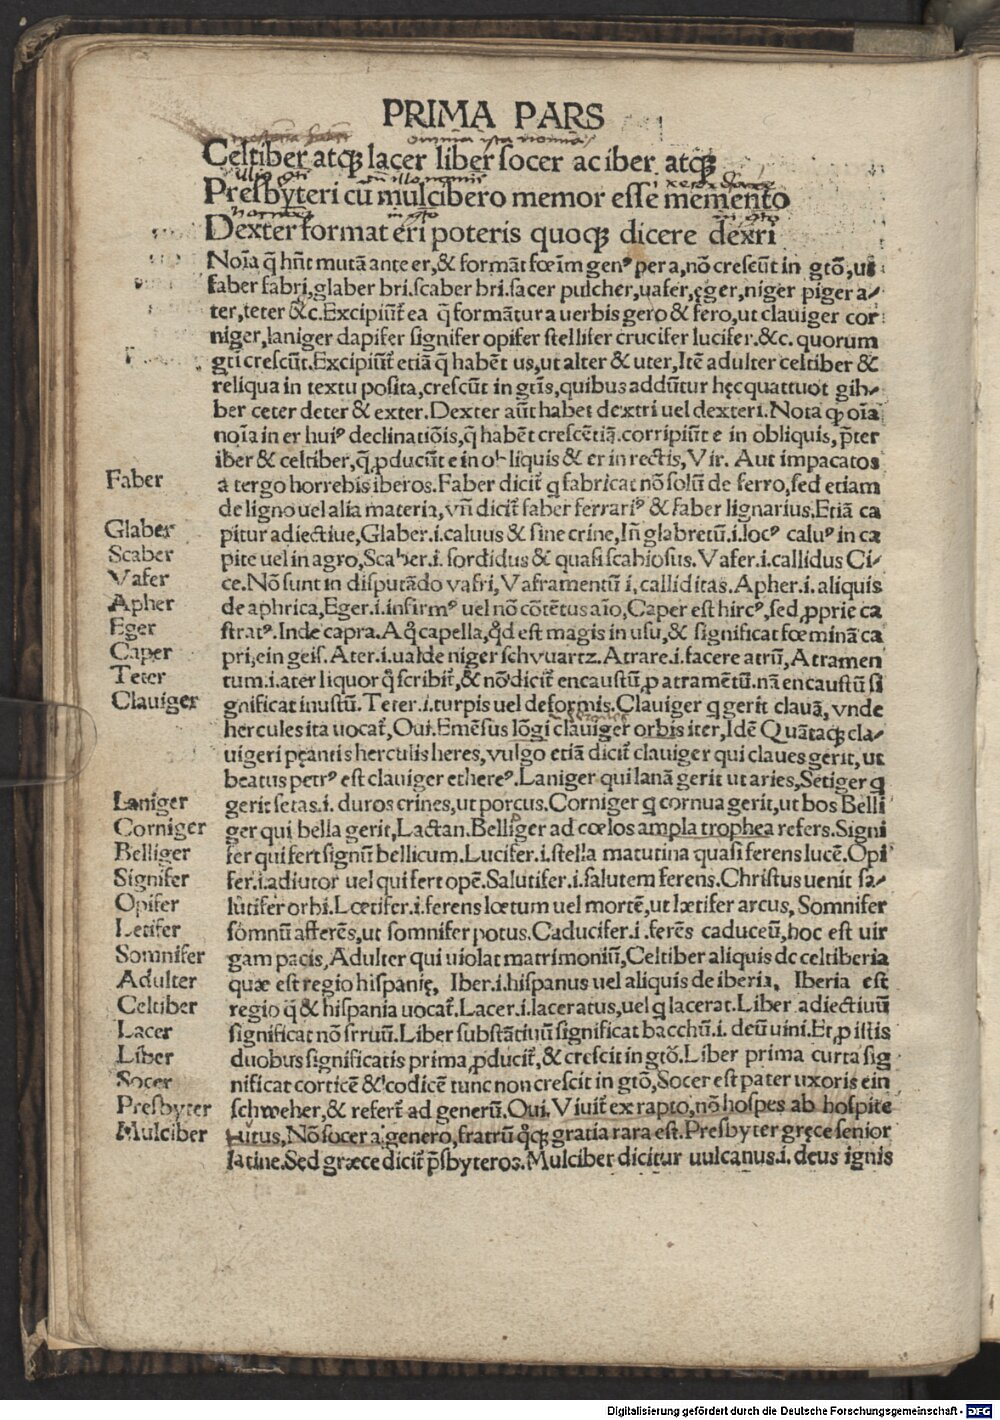 PRIMA PARS
omnia ista nomina
Celtiber atqꝫ lacer liber socer ac iber atqꝫ
Presbyteri cū mulcibero memor esse memento
Dexter format eri poteris quoqꝫ dicere dextri
Noīa q̄ hn̄t mutā ante er, & formāt fœīm genꝰ per a, nō crescūt in gtō, ut
faber fabri, glaber bri. scaber bri. sacer pulcher, uafer, ęger, niger piger a/
ter, teter &c. Excipiūt̄ ea q̄ formāt̄ur a uerbis gero & fero, ut clauiger cor
niger, laniger dapifer signifer opifer stellifer crucifer lucifer. &c. quorum
gti crescūt. Excipiūt̄ etiā q̄ habēt us, ut alter & uter, Itē adulter celtiber &
reliqua in textu posita, crescūt in gtīs, quibus addūtur hęc quattuor gib/
ber ceter deter & exter. Dexter aūt habet dextri uel dexteri. Nota qꝙ oīa
noīa in er huiꝰ declinatiōis, q̄ habēt crescētiā. corripiūt e in obliquis, p̄ter
iber & celtiber, q̄, ꝓducūt e in obliquis & er in rectis, Vir. Aut impacatos
Faber a tergo horrebis iberos. Faber dicit̄ q fabricat nō solū de ferro, sed etiam
de ligno uel alia materia, vn̄ dicit̄ faber ferrariꝰ & faber lignarius. Etiā ca
Glaber pitur adiectiue, Glaber .i. caluus & sine crine, In̄ glabretū .i. locꝰ caluꝰ in ca
Scaber pite uel in agro, Scaber .i. sordidus & quasi scabiosus. Vafer .i. callidus Ci/
Vafer ce. Nō sunt in disputādo vafri, Vaframentū i, calliditas. Apher .i. aliquis
Apher de aphrica, Eger .i. infirmꝰ uel nō cōtētus aīo, Caper est hircꝰ, sed, ꝓprie ca
Eger stratꝰ. Inde capra. A q̊ capella, qd̊ est magis in usu, & significat fœminā ca
Caper pri, ein geis. Ater .i. ualde niger schvuartz. Atrare .i. facere atrū, Atramen
Teter tum .i. ater liquor q̊ scribit̄, & nō dicit̄ encaustū, ꝓ atramētū. nā encaustū si
Clauiger gnificat inustū. Teter .i. turpis uel deformis. Clauiger q gerit clauā, vnde
hercules ita uocat̄, Oui. Emēsus lōgi clauiger orbis iter, Idē Quātaqꝫ cla/
uigeri pęantis herculis heres, vulgo etiā dicit̄ clauiger qui claues gerit, ut
beatus petrꝰ est clauiger ethereꝰ. Laniger qui lanā gerit ut aries, Setiger q
Laniger gerit setas .i. duros crines, ut porcus. Corniger q cornua gerit, ut bos Belli
Corniger ger qui bella gerit, Lactan. Belliger ad cœlos ampla trophea refers. Signi
Belliger fer qui fert signū bellicum. Lucifer .i. stella matutina quasi ferens lucē. Opi
Signifer fer .i. adiutor uel qui fert opē. Salutifer .i. salutem ferens. Christus uenit sa/
Opifer lutifer orbi. Lœtifer .i. ferens lœtum uel mortē, ut lætifer arcus, Somnifer
Letifer somnū afferēs, ut somnifer potus. Caducifer .i .ferēs caduceū, hoc est uir
Somnifer gam pacis, Adulter qui uiolat matrimoniū, Celtiber aliquis de celtiberia
Adulter quæ est regio hispanię, Iber .i. hispanus uel aliquis de iberia, Iberia est
Celtiber regio q̄ & hispania uocat̄. Lacer .i. laceratus, uel q lacerat. Liber adiectiuū
Lacer significat nō seruū. Liber substātiuū significat bacchū .i. deū uini. Et, ꝓ istis
Liber duobus significatis prima, ꝓducit̄, & crescit in gtō. Liber prima curta sig
Socer nificat corticē & codicē tunc non crescit in gtō, Socer est pater uxoris ein
Presbyter schweher, & refert̄ ad generū. Oui. Viuit̄ ex rapto, nō hospes ab hospite
Mulciber tutus, Nō socer a genero, fratrū q̊qꝫ gratia rara est. Presbyter gręce senior
latine. Sed græce dicit̄ p̄sbyteros. Mulciber dicitur uulcanus .i. deus ignis
Digitalisierung gefördert durch die Deutsche Forschungsgemeinschaft - DFG